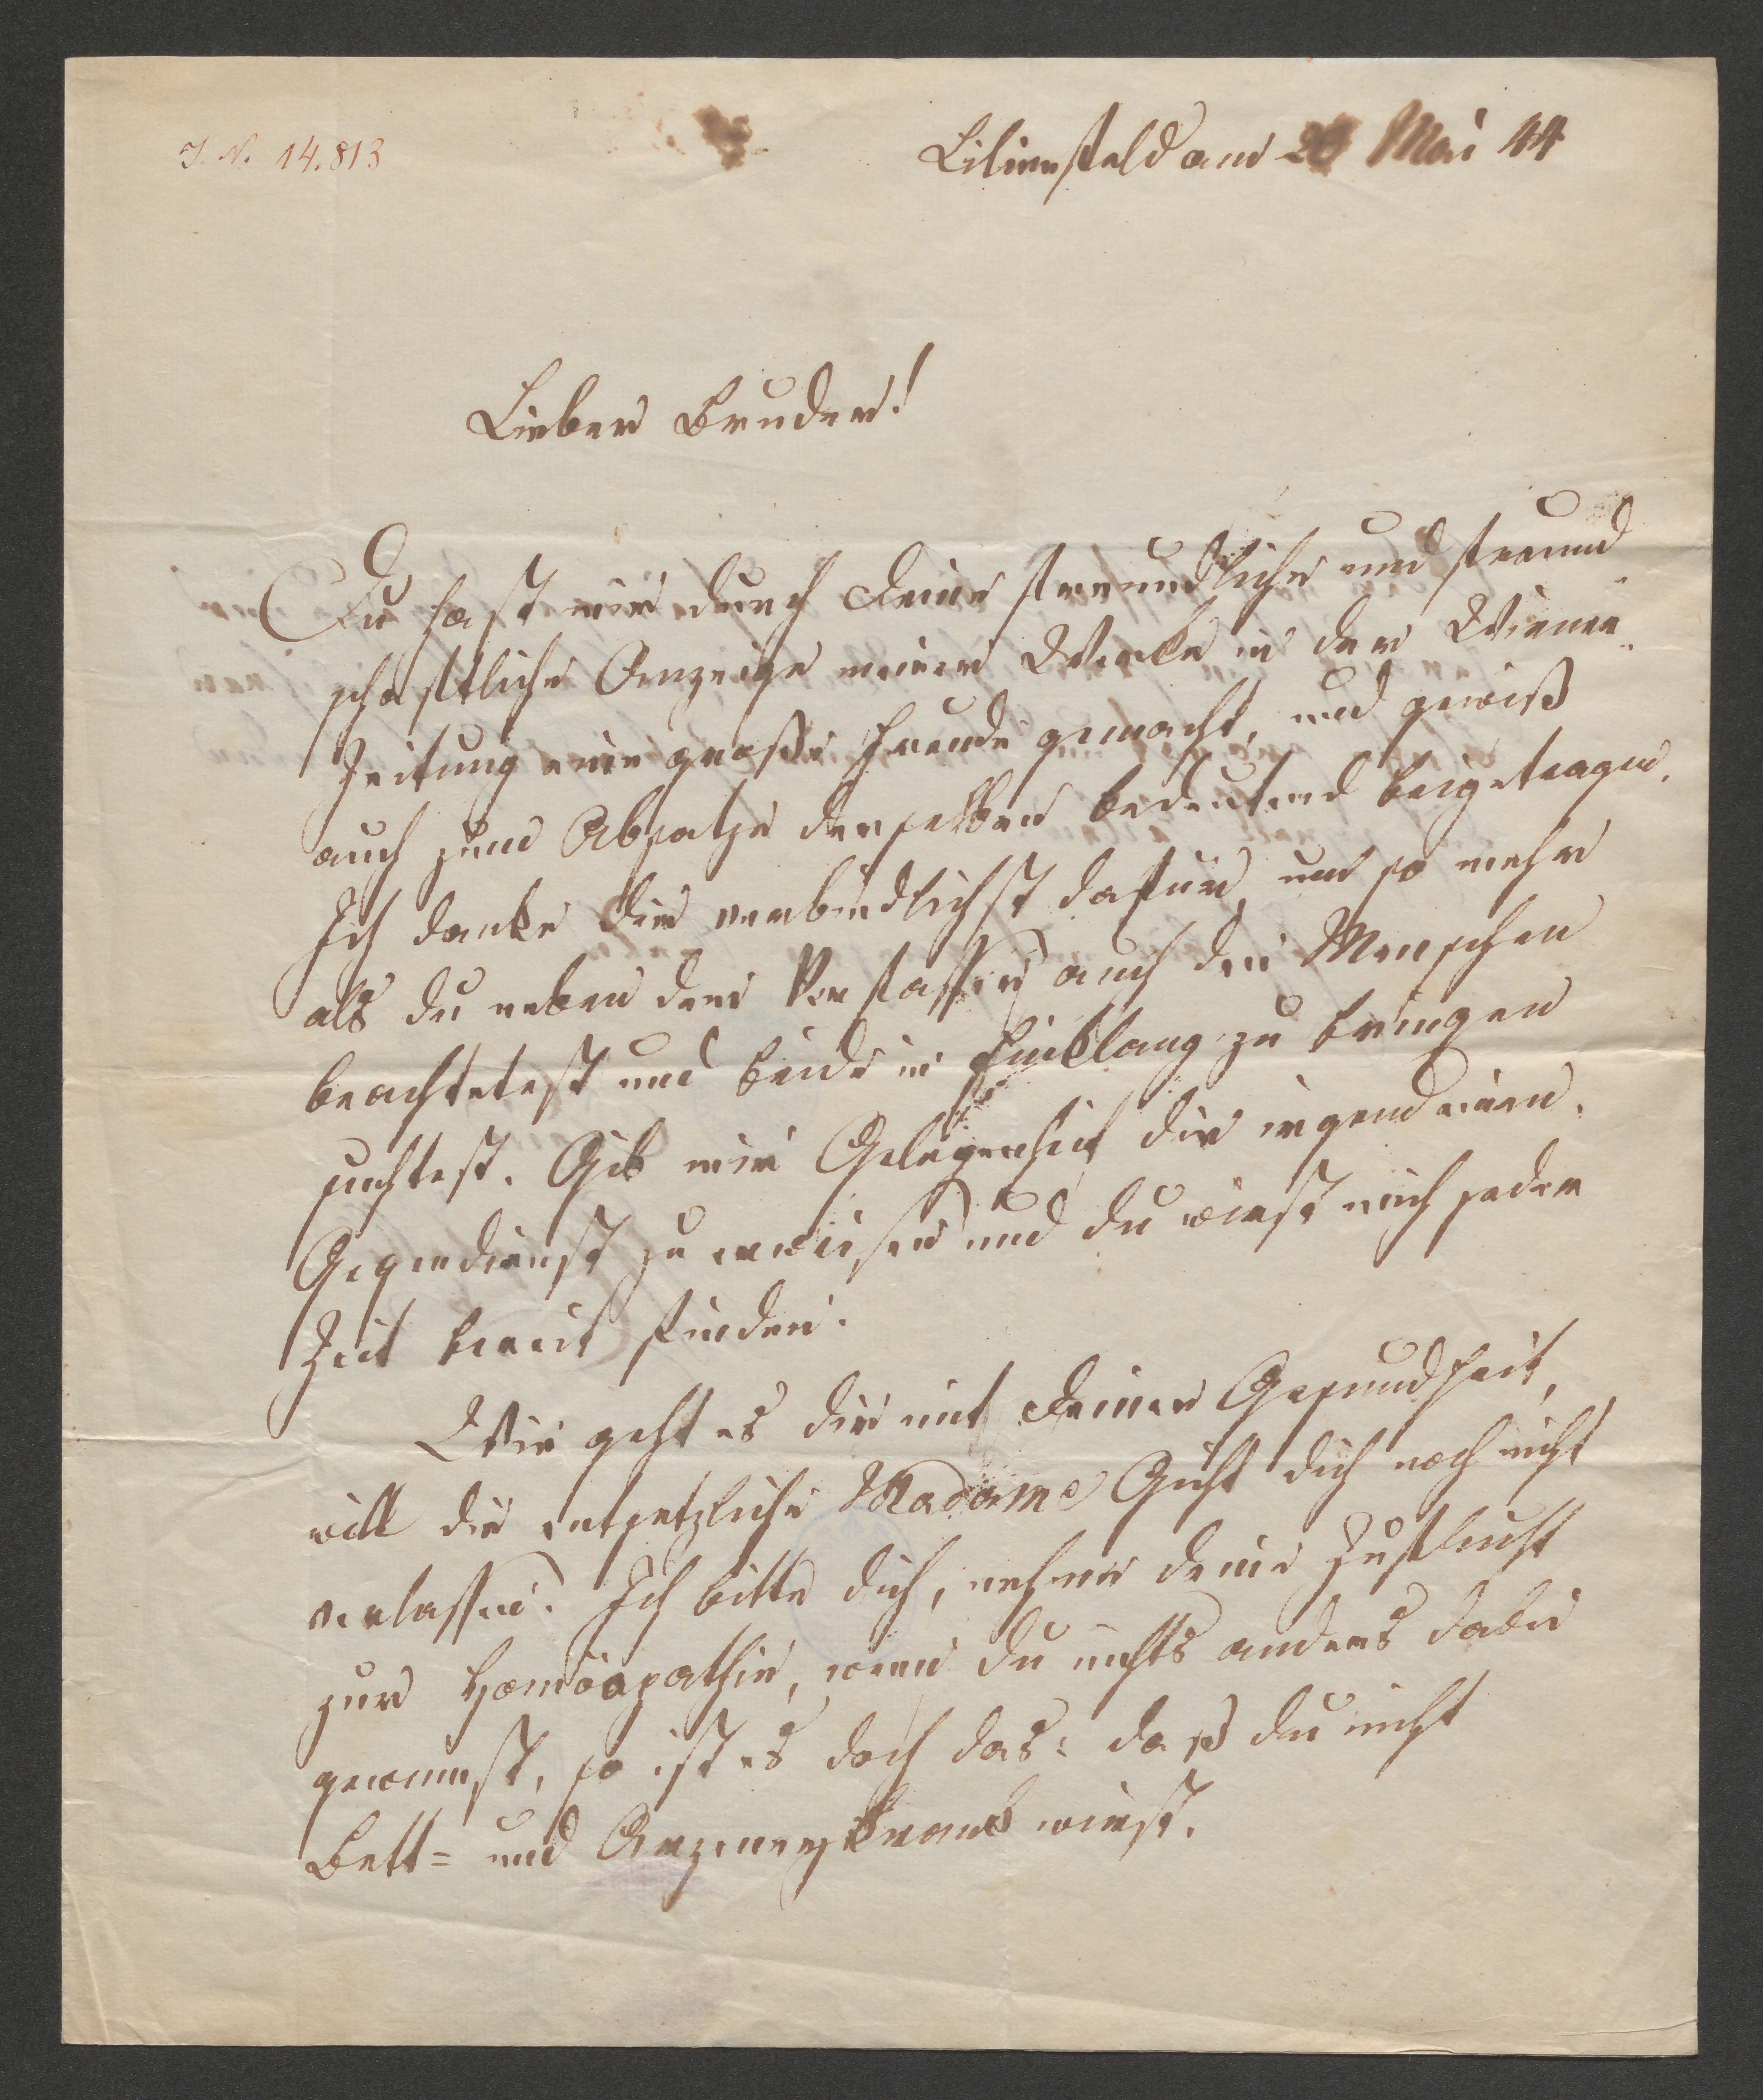 J. N. 14.813
Lilienfeld am Mai 44
Lieber Bruder!
Du hast mir durch Deine freundliche und freund
schaftliche Anzeige meiner Werke in der Wiener-
Zeitung eine große Freude gemacht, und gewiß
auch zum Absatze derselben bedeutend beigetragen.
Ich danke dir verbindlichst dafür, um so mehr
als du neben dem Verfasser auch den Menschen
beachtetest und beide in Einklang zu bringen
suchtest. Gib mir Gelegenheit dir irgend einen
Gegendienst zu erweisen und du wirst mich jeder
Zeit bereit finden.
Wie geht es dir mit Deiner Gesundheit,
will die entsetzliche Madame Gicht dich noch nicht
verlassen. Ich bitte dich, nehme deine Zuflucht
zur Homöopathie, wenn du nichts anders dabei
gewinnst, so ist es doch das: daß du nicht
Bett= und Arzneykrank wirst.